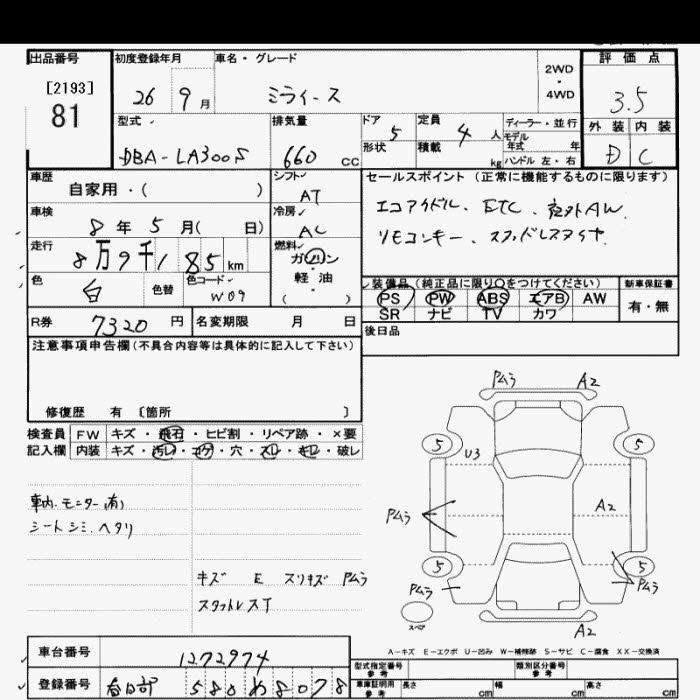 出品番号 初度登録年月 車名・グレード 2WD・4WD 評価点
[2193]
81 26 9月 ミライース 3.5
型式 排気量 ドア 5 定員 4人 ディーラー・並行 外装 内装
モデル年式 年
DBA-LA300S 660 cc 形状 積載 kg ハンドル 左・右 D C
車歴 シフト セールスポイント (正常に機能するものに限ります)
自家用・( ) AT
車検 8年5月( 日) 冷房 AC エコアイドル、ETC、社外AW、
走行 8万9千185km 燃料 ガソリン・軽油 ( ) リモコンキー、スタッドレスタイヤ
色 白 色替 色コード W09 装備品 (純正品に限り○をつけてください) 新車保証書
PS PW ABS エアB AW 有・無
SR ナビ TV カワ
R券 7320円 名変期限 月 日 後日品
注意事項申告欄(不具合内容等は具体的に記入して下さい)
修復歴 有 [箇所 ]
検査員 FW キズ・飛石・ヒビ割・リペア跡・×要
記入欄 内装 キズ・汚レ・コゲ・穴・スレ・キレ・破レ
車内モニター(有)
シートシミ、ヘタリ
キズ E スリキズ Pムラ
スタットレスT
Pムラ A2
5 U3 5
Pムラ A2
5 5
Pムラ Pムラ
スペア A2
A-キズ E-エクボ U-凹み W-補修跡 S-サビ C-腐食 XX-交換済
車台番号 1272974 型式指定番号 参考 類別区分番号 参考
登録番号 春日部 580 め 8078 車庫証明用 参考 長さ cm 幅 cm 高さ cm